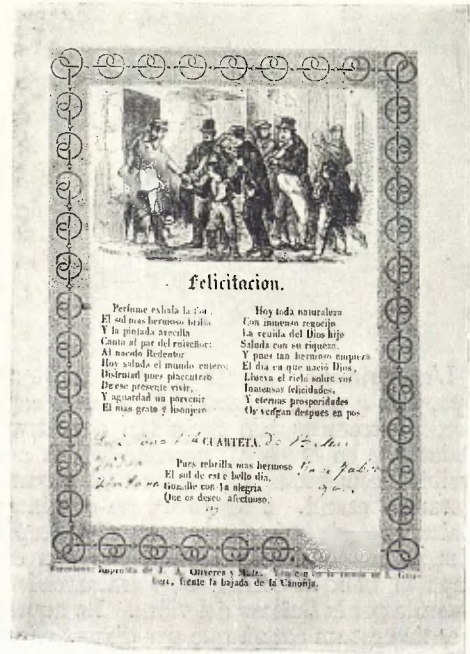 Felicitacion.
Perfume exhala la flor,
El sol mas hermoso brilla
Y la pintada avecilla
Canta al par del ruiseñor:
Al nacido Redentor
Hoy saluda el mundo entero;
Disfrutad pues placentero
De ese presente vivir,
Y aguardad un porvenir
El mas grato y lisonjero
Hoy toda naturaleza
Con inmenso regocijo
La venida del Dios hijo
Saluda con su riqueza.
Y pues tan hermoso empieza
El dia en que nació Dios,
Llueva el cielo sobre vos
Inmensas felicidades,
Y eternas prosperidades
Os vengan despues en pos
CUARTETA.
Pues rebrilla mas hermoso
El sol de este bello dia,
con la alegria
Que os deseo afectuoso.
Barcelona: Imprenta de J. A. Oliveres y
frente la bajada de la Canonja.